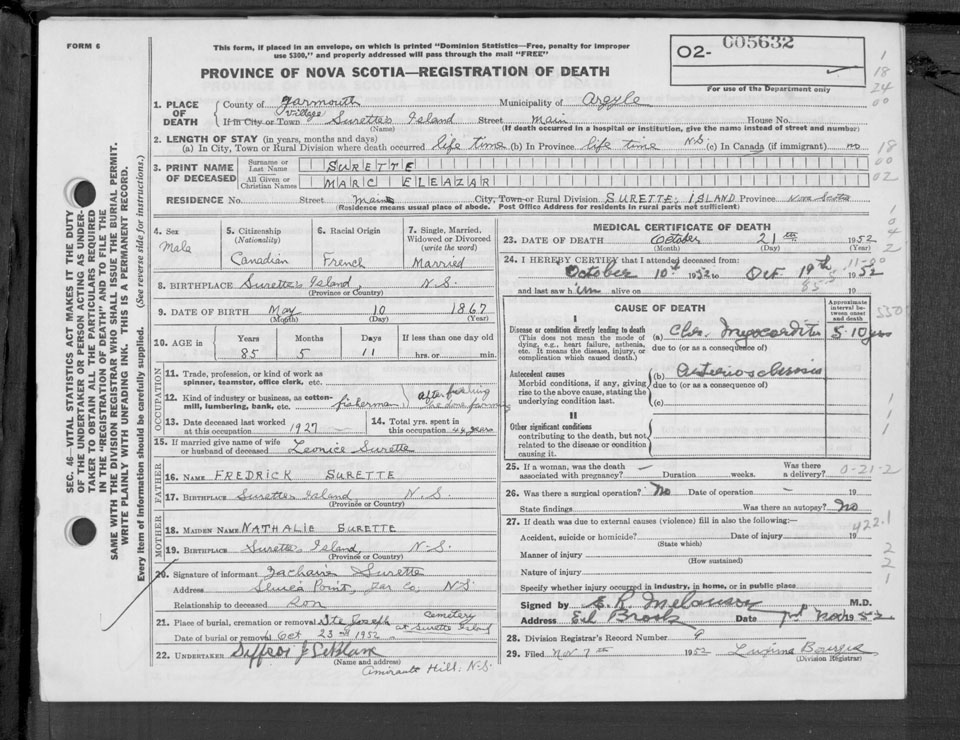 FORM 6
This form, if placed in an envelope, on which is printed "Dominion Statistics—Free, penalty for improper
use $300," and properly addressed will pass through the mail "FREE"
PROVINCE OF NOVA SCOTIA—REGISTRATION OF DEATH
O2- 005632
For use of the Department only
1. PLACE OF DEATH
County of Yarmouth Municipality of Argyle
If in City or Town Village Surette's Island Street Main House No.
(Name) (If death occurred in a hospital or institution, give the name instead of street and number)
2. LENGTH OF STAY (in years, months and days)
(a) In City, Town or Rural Division where death occurred life time (b) In Province life time N.S. (c) In Canada (if immigrant) no
3. PRINT NAME OF DECEASED
Surname or Last Name SURETTE
All Given or Christian Names MARC ELEAZAR
RESIDENCE No. Street Main City, Town or Rural Division SURETTE'S ISLAND Province Nova Scotia
(Residence means usual place of abode. Post Office Address for Residents in rural parts not sufficient)
4. Sex
Male
5. Citizenship (Nationality)
Canadian
6. Racial Origin
French
7. Single, Married, Widowed or Divorced (write the word)
Married
8. BIRTHPLACE Surette's Island, N.S.
(Province or Country)
9. DATE OF BIRTH May 10 1867
(Month) (Day) (Year)
10. AGE in
Years Months Days If less than one day old
85 5 11 hrs. or min.
OCCUPATION
11. Trade, profession, or kind of work as spinner, teamster, office clerk, etc.
12. Kind of industry or business, as cotton-mill, lumbering, bank, etc. fisherman after fishing farming
13. Date deceased last worked at this occupation 1927
14. Total yrs. spent in this occupation 44 years
15. If married give name of wife or husband of deceased Leonice Surette
FATHER
16. NAME FREDRICK SURETTE
17. BIRTHPLACE Surette's Island N.S.
(Province or Country)
MOTHER
18. MAIDEN NAME NATHALIE SURETTE
19. BIRTHPLACE Surette's Island, N.S.
(Province or Country)
20. Signature of informant Zacharie Surette
Address Sluice Point, Yar Co, N.S
Relationship to deceased Son
21. Place of burial, cremation or removal Ste Joseph cemetery at Surette Island
Date of burial or removal Oct 23rd 1952
22. UNDERTAKER LeBlanc
(Name and address)
Amirault Hill, N.S.
MEDICAL CERTIFICATE OF DEATH
23. DATE OF DEATH October 21st 1952
(Month) (Day) (Year)
24. I HEREBY CERTIFY that I attended deceased from:
October 10th 1952 to Oct 19th 1952
and last saw him alive on 19
CAUSE OF DEATH
Approximate interval between onset and death
I
Disease or condition directly leading to death
(This does not mean the mode of dying, e.g., heart failure, asthenia, etc. It means the disease, injury, or complication which caused death.)
(a) Chr. Myocarditis 5-10 yrs
due to (or as a consequence of)
Antecedent causes
Morbid conditions, if any, giving rise to the above cause, stating the underlying condition last.
(b) arteriosclerosis
due to (or as a consequence of)
(c)
II
Other significant conditions
contributing to the death, but not related to the disease or condition causing it.
25. If a woman, was the death associated with pregnancy? — Duration weeks. Was there a delivery?
0-21-2
26. Was there a surgical operation? No Date of operation – 19
State findings Was there an autopsy? No
27. If death was due to external causes (violence) fill in also the following:—
422.1
Accident, suicide or homicide? Date of injury 19
(State which)
Manner of injury
(How sustained)
Nature of injury
Specify whether injury occurred in industry, in home, or in public place
Signed by E. R. Melanson M.D.
Address Eel Brook Date 7th Nov 1952
28. Division Registrar's Record Number 9
29. Filed Nov 7th 1952 Bourque
(Division Registrar)
SEC. 46—VITAL STATISTICS ACT MAKES IT THE DUTY
OF THE UNDERTAKER OR PERSON ACTING AS UNDER-
TAKER TO OBTAIN ALL THE PARTICULARS REQUIRED
IN THE "REGISTRATION OF DEATH" AND TO FILE THE
SAME WITH THE DIVISION REGISTRAR WHO SHALL ISSUE THE BURIAL PERMIT.
WRITE PLAINLY WITH UNFADING INK. THIS IS A PERMANENT RECORD.
Every item of information should be carefully supplied. (See reverse side for instructions.)